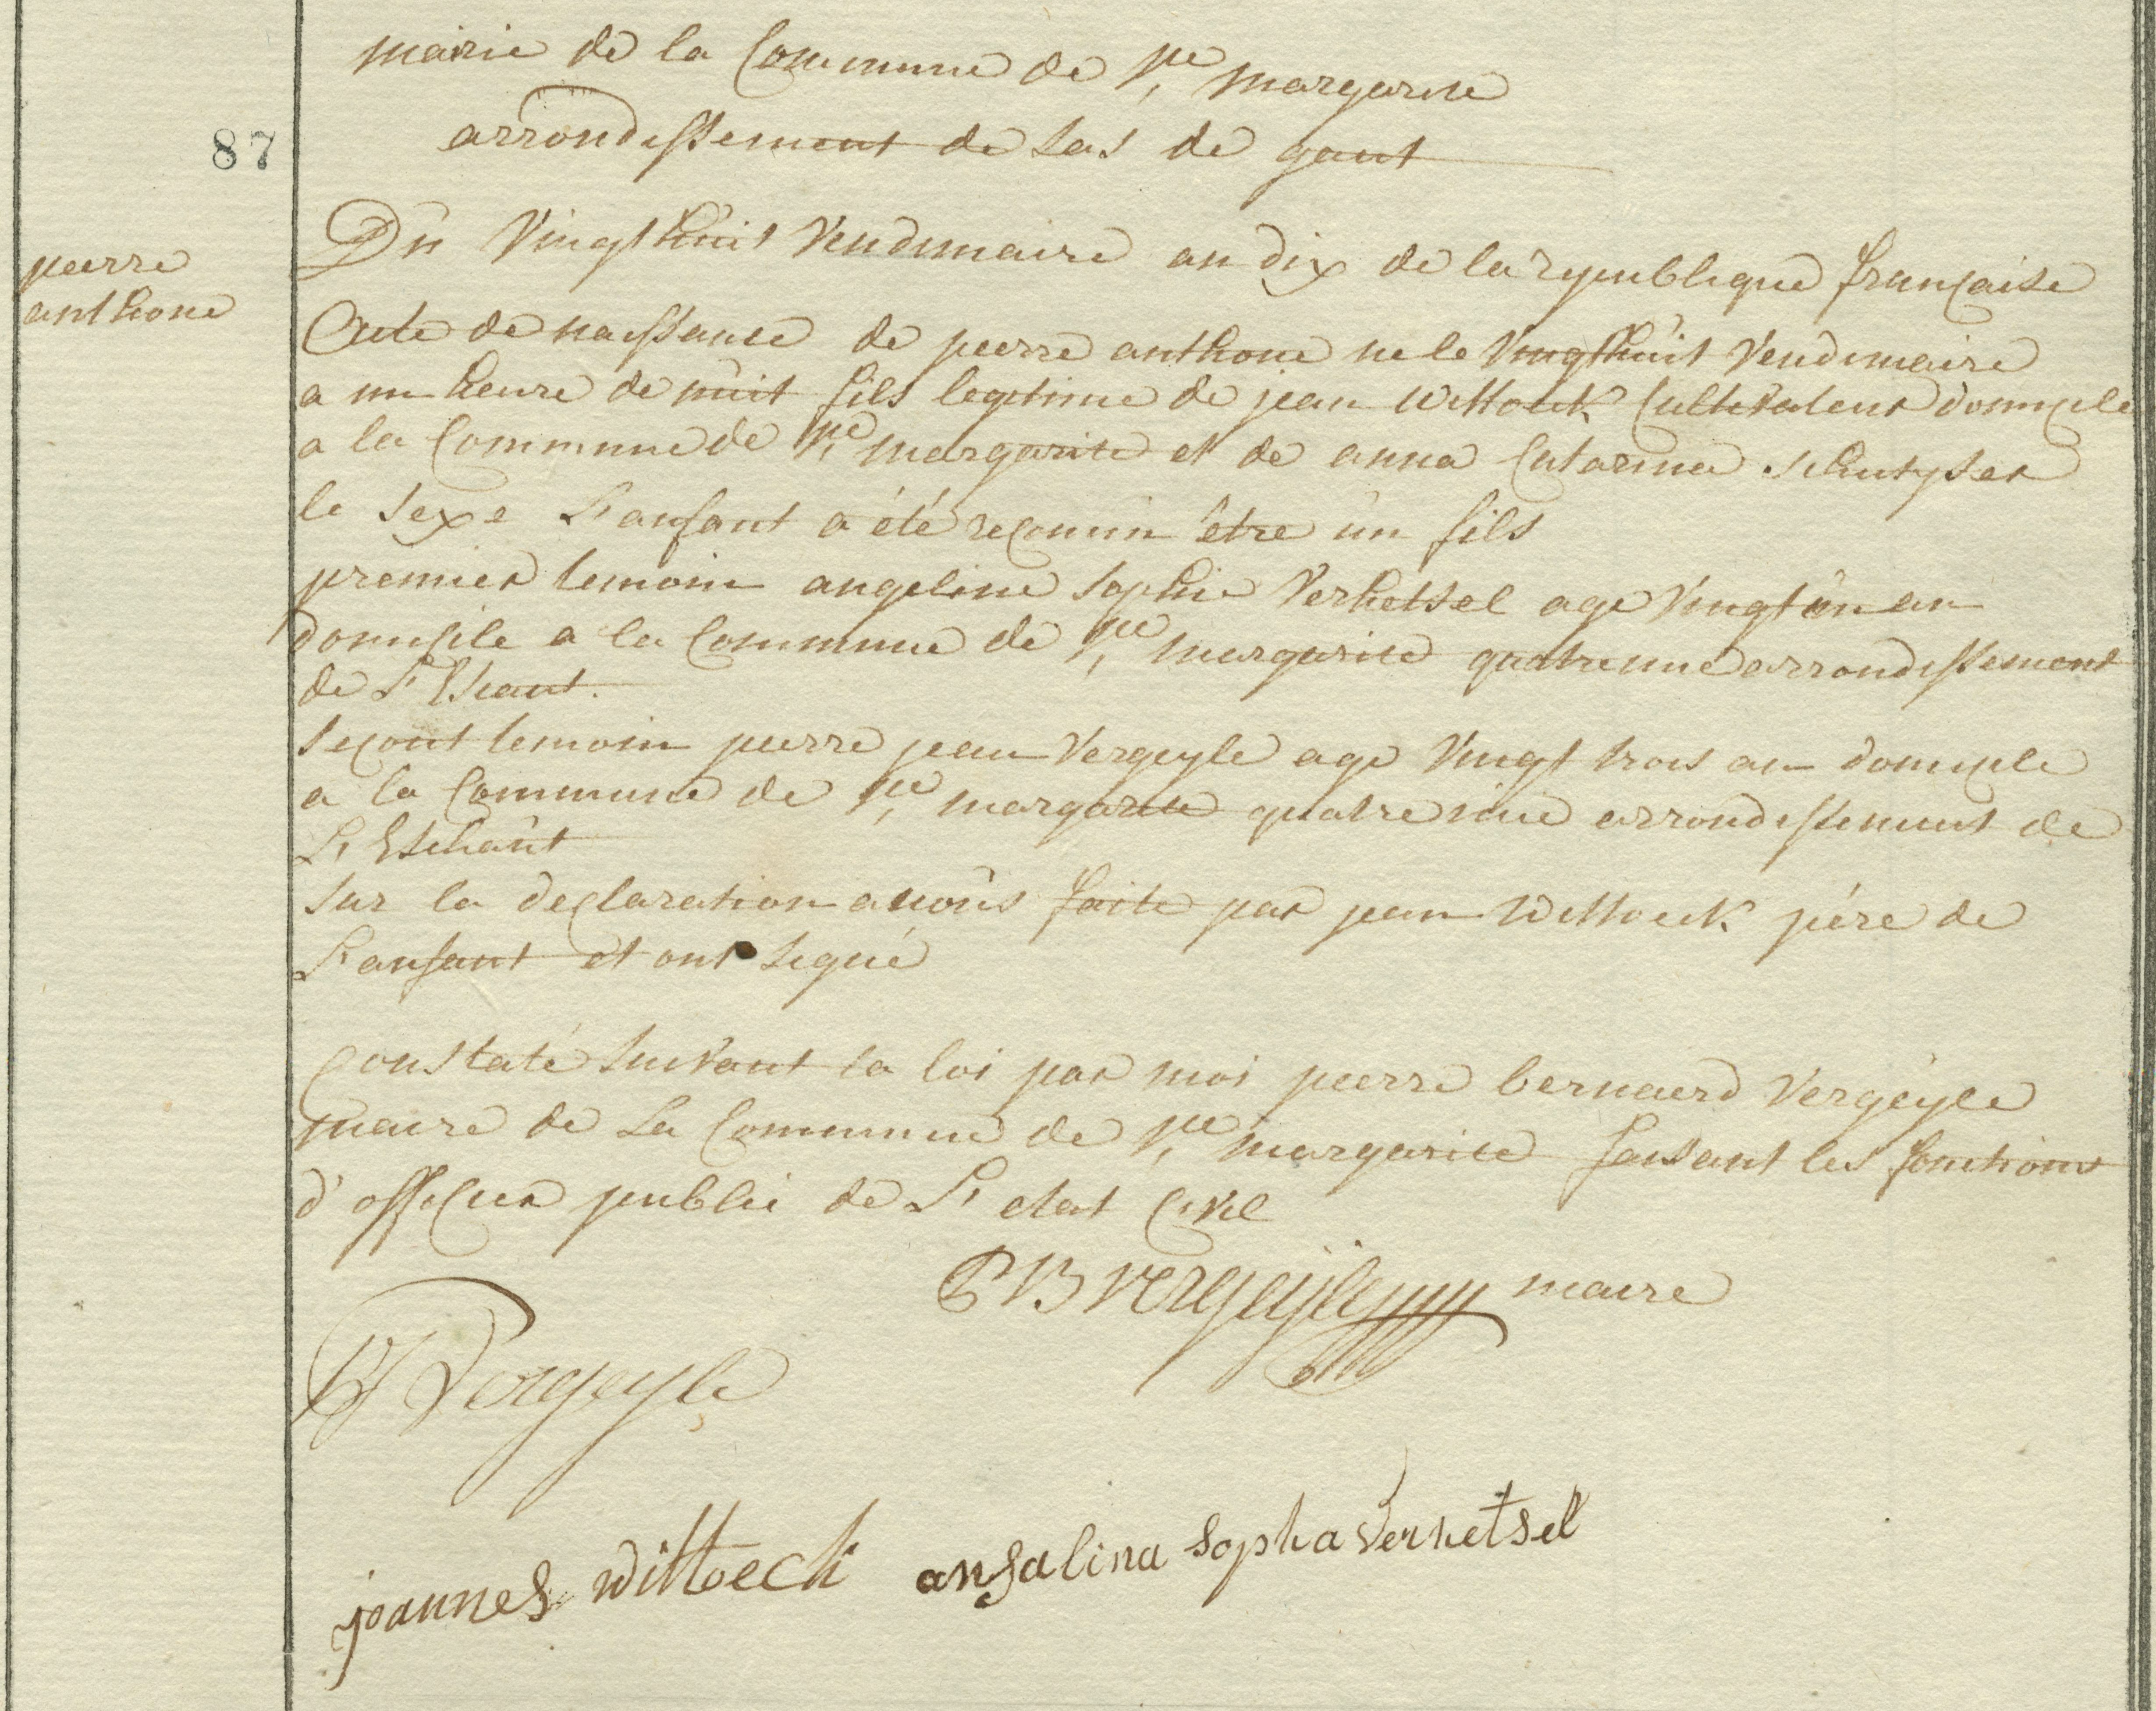 mairie de la Commune de Ste, margarite
arrondissement de Sas de gant
87
Du Vingt huit Vendimaire an dix de la republique française
pierre
anthone
Acte de naissance de pierre anthone ne le Vingthuit Vendimaire
a un heure de nuit fils legitime de jean Wittoeck Cultivateur domicile
a la Commune de Ste, margarite et de anna Catarina schutyser
le sexe L'anfant a été reconnu être un fils
premier temoin angeline sophie Verhetsel age Vingt un an
domicile a la Commune de Ste, margarite quatrieme arrondissement
de L'Escaut.
secont temoin pierre jean Vergeyle age Vingt trois an domicile
a la Commune de Ste, margarite quatreieme arrondissement de
L'Eschaut
sur la declaration a nous faite par jean Wittoeck pére de
L'anfant et ont signé
Constaté suivant la loi par moi pierre bernaerd Vergeyle
maire de La Commune de Ste, margarite faisant les fonctions
d'officier public de L'etat Civil
P B Vergeyle maire
PJ Vergeyle
joannes wittoeck angalina sopha verhetsel